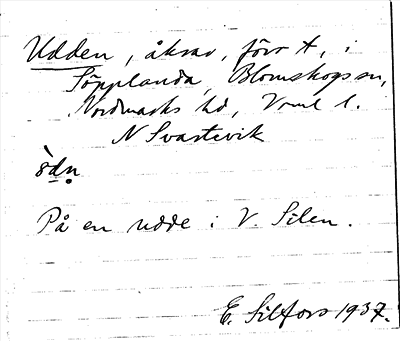 Udden, åkrar, förr t, i
Töpplanda, Blomskogs sn,
Nordmarks hd, Vrml l.
N Svartevik
ùdn̥
På en udde i V. Silen.
E. Silfors 1937.